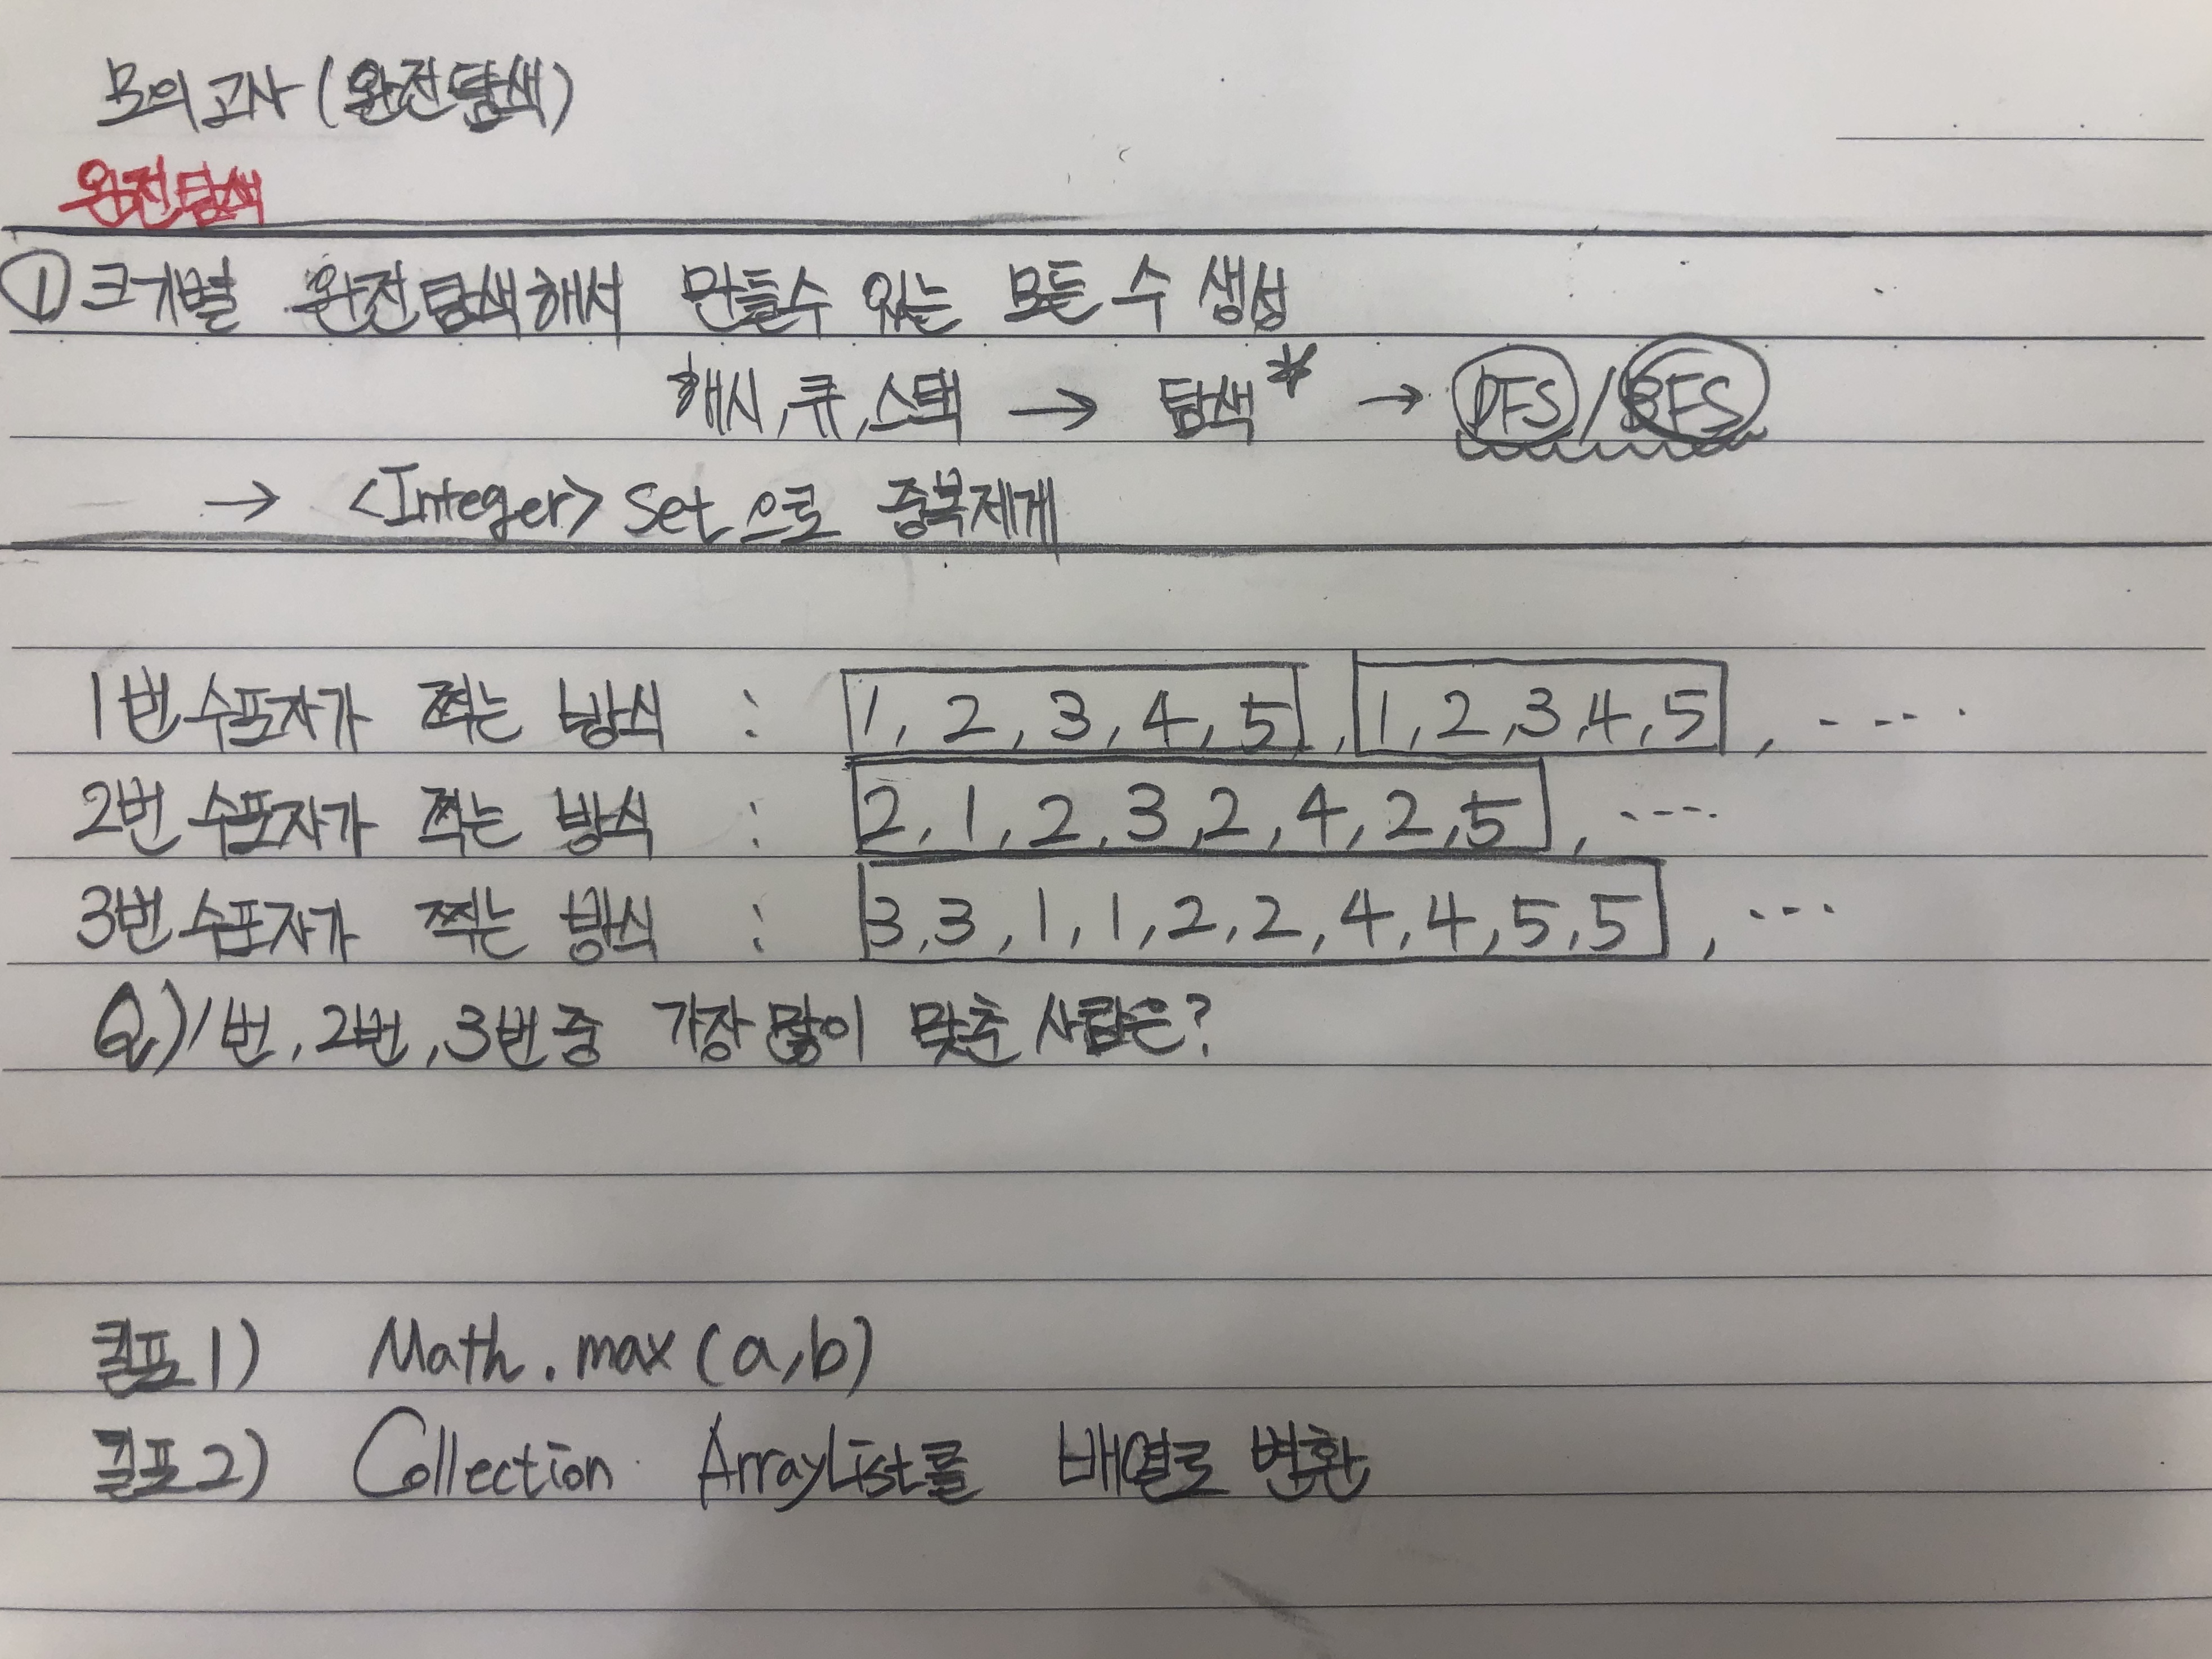 모의고사(완전탐색)
완전탐색
① 크기별 완전탐색해서 만들수 있는 모든 수 생성
해시,큐,스택 → 탐색* → DFS/BFS
→ <Integer> Set으로 중복제게
1번 수포자가 찍는 방식 : 1, 2, 3, 4, 5, 1, 2, 3, 4, 5, ....
2번 수포자가 찍는 방식 : 2, 1, 2, 3, 2, 4, 2, 5, ....
3번 수포자가 찍는 방식 : 3, 3, 1, 1, 2, 2, 4, 4, 5, 5, ...
Q) 1번, 2번, 3번 중 가장 많이 맞춘 사람은?
킬포1) Math.max(a,b)
킬포2) Collection ArrayList를 배열로 변환